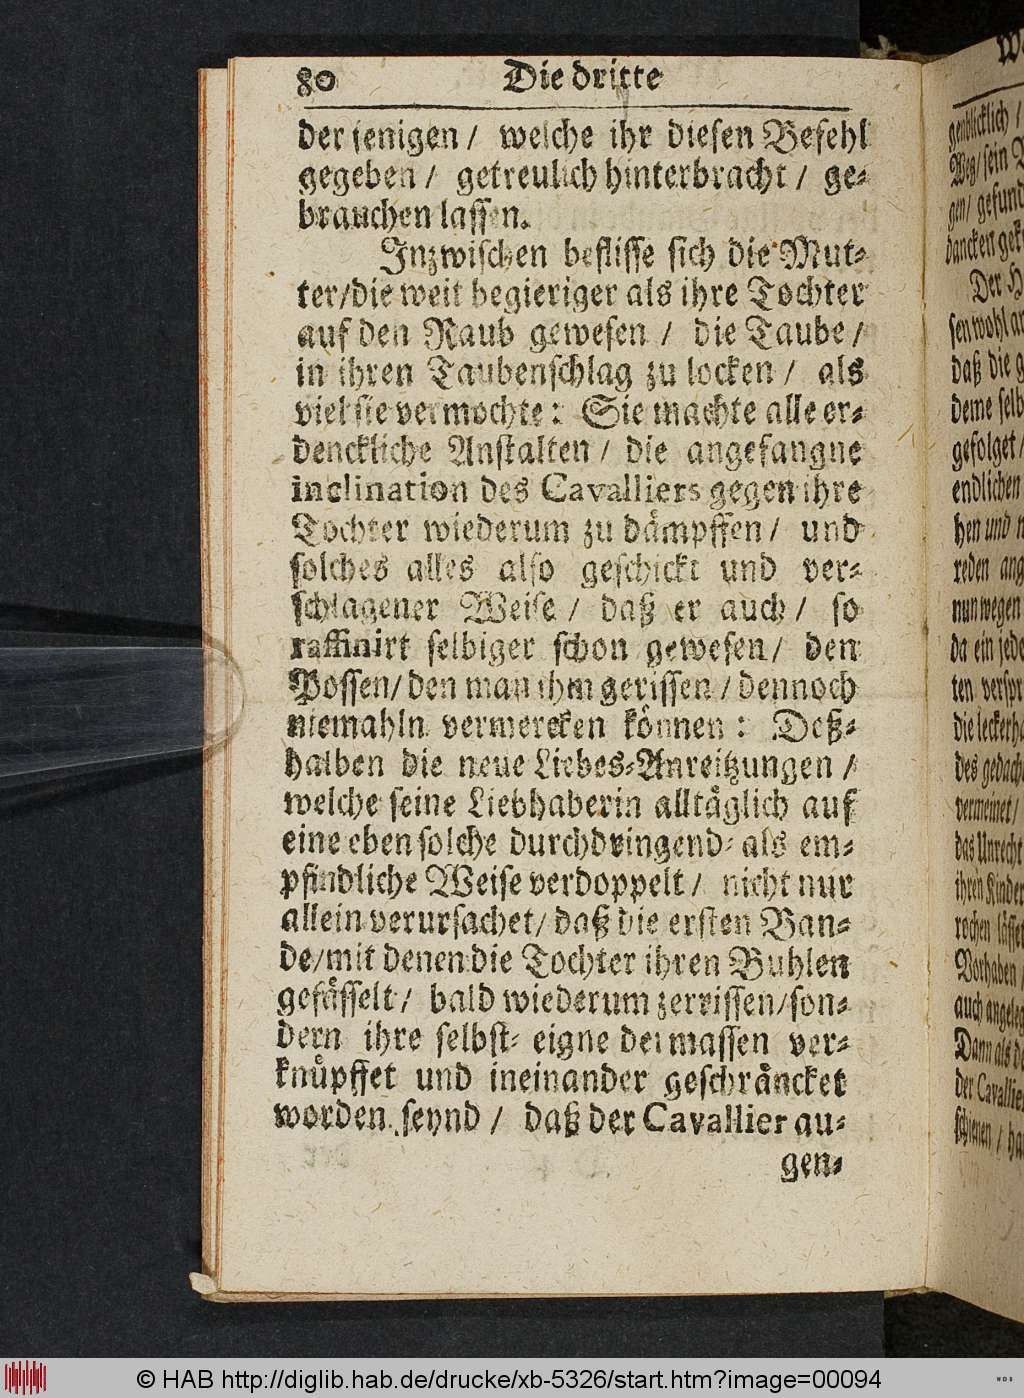 80 Die dritte
derjenigen / welche ihr diesen Befehl
gegeben / getreulich hinterbracht / ge-
brauchen lassen.
Inzwischen beflisse sich die Mut-
ter/die weit begieriger als ihre Tochter
auf den Raub gewesen / die Taube /
in ihren Taubenschlag zu locken / als
viel sie vermochte: Sie machte alle er-
denckliche Anstalten / die angefangne
inclination des Cavalliers gegen ihre
Tochter wiederum zu dämpffen / und
solches alles also geschickt und ver-
schlagener Weise / daß er auch / so
raffinirt selbiger schon gewesen / den
Possen/ den man ihm gerissen / dennoch
niemahln vermercken können: Deß-
halben die neue Liebes-Anreitzungen /
welche seine Liebhaberin alltäglich auf
eine eben solche durchdringend- als em-
pfindliche Weise verdoppelt / nicht nur
allein verursachet/ daß die ersten Ban-
de/mit denen die Tochter ihren Buhlen
gefässelt / bald wiederum zerrissen/son-
dern ihre selbst-eigne dermassen ver-
knüpffet und ineinander geschräncket
worden seynd / daß der Cavallier au-
gen-
genblicklich /
Weg/sein
gen/ gefund
dancken
Der
sen wohl
daß die
deme selb
gefolget /
endlichen
hen und
reden ang
nun wegen
da ein jede
ten verspr
die leckerh
des gedach
vermeinet /
das Unrecht
ihren Kinder
rochen lässet
Vorhaben /
auch angeleg
Dann als
der Cavallier
schienen / ha
© HAB http://diglib.hab.de/drucke/xb-5326/start.htm?image=00094